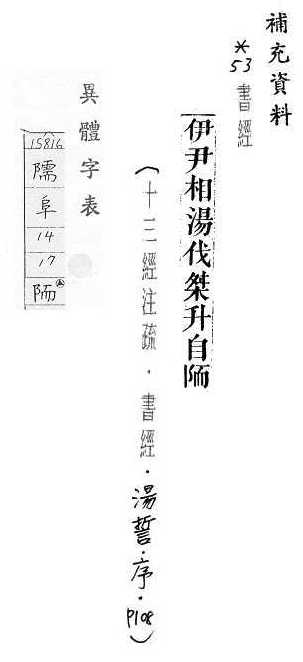 補充資料
*53 書經
伊尹相湯伐桀升自陑
(十三經注疏．書經．湯誓．序．P108)
異體字表
15816
隭
阜
14
17
陑